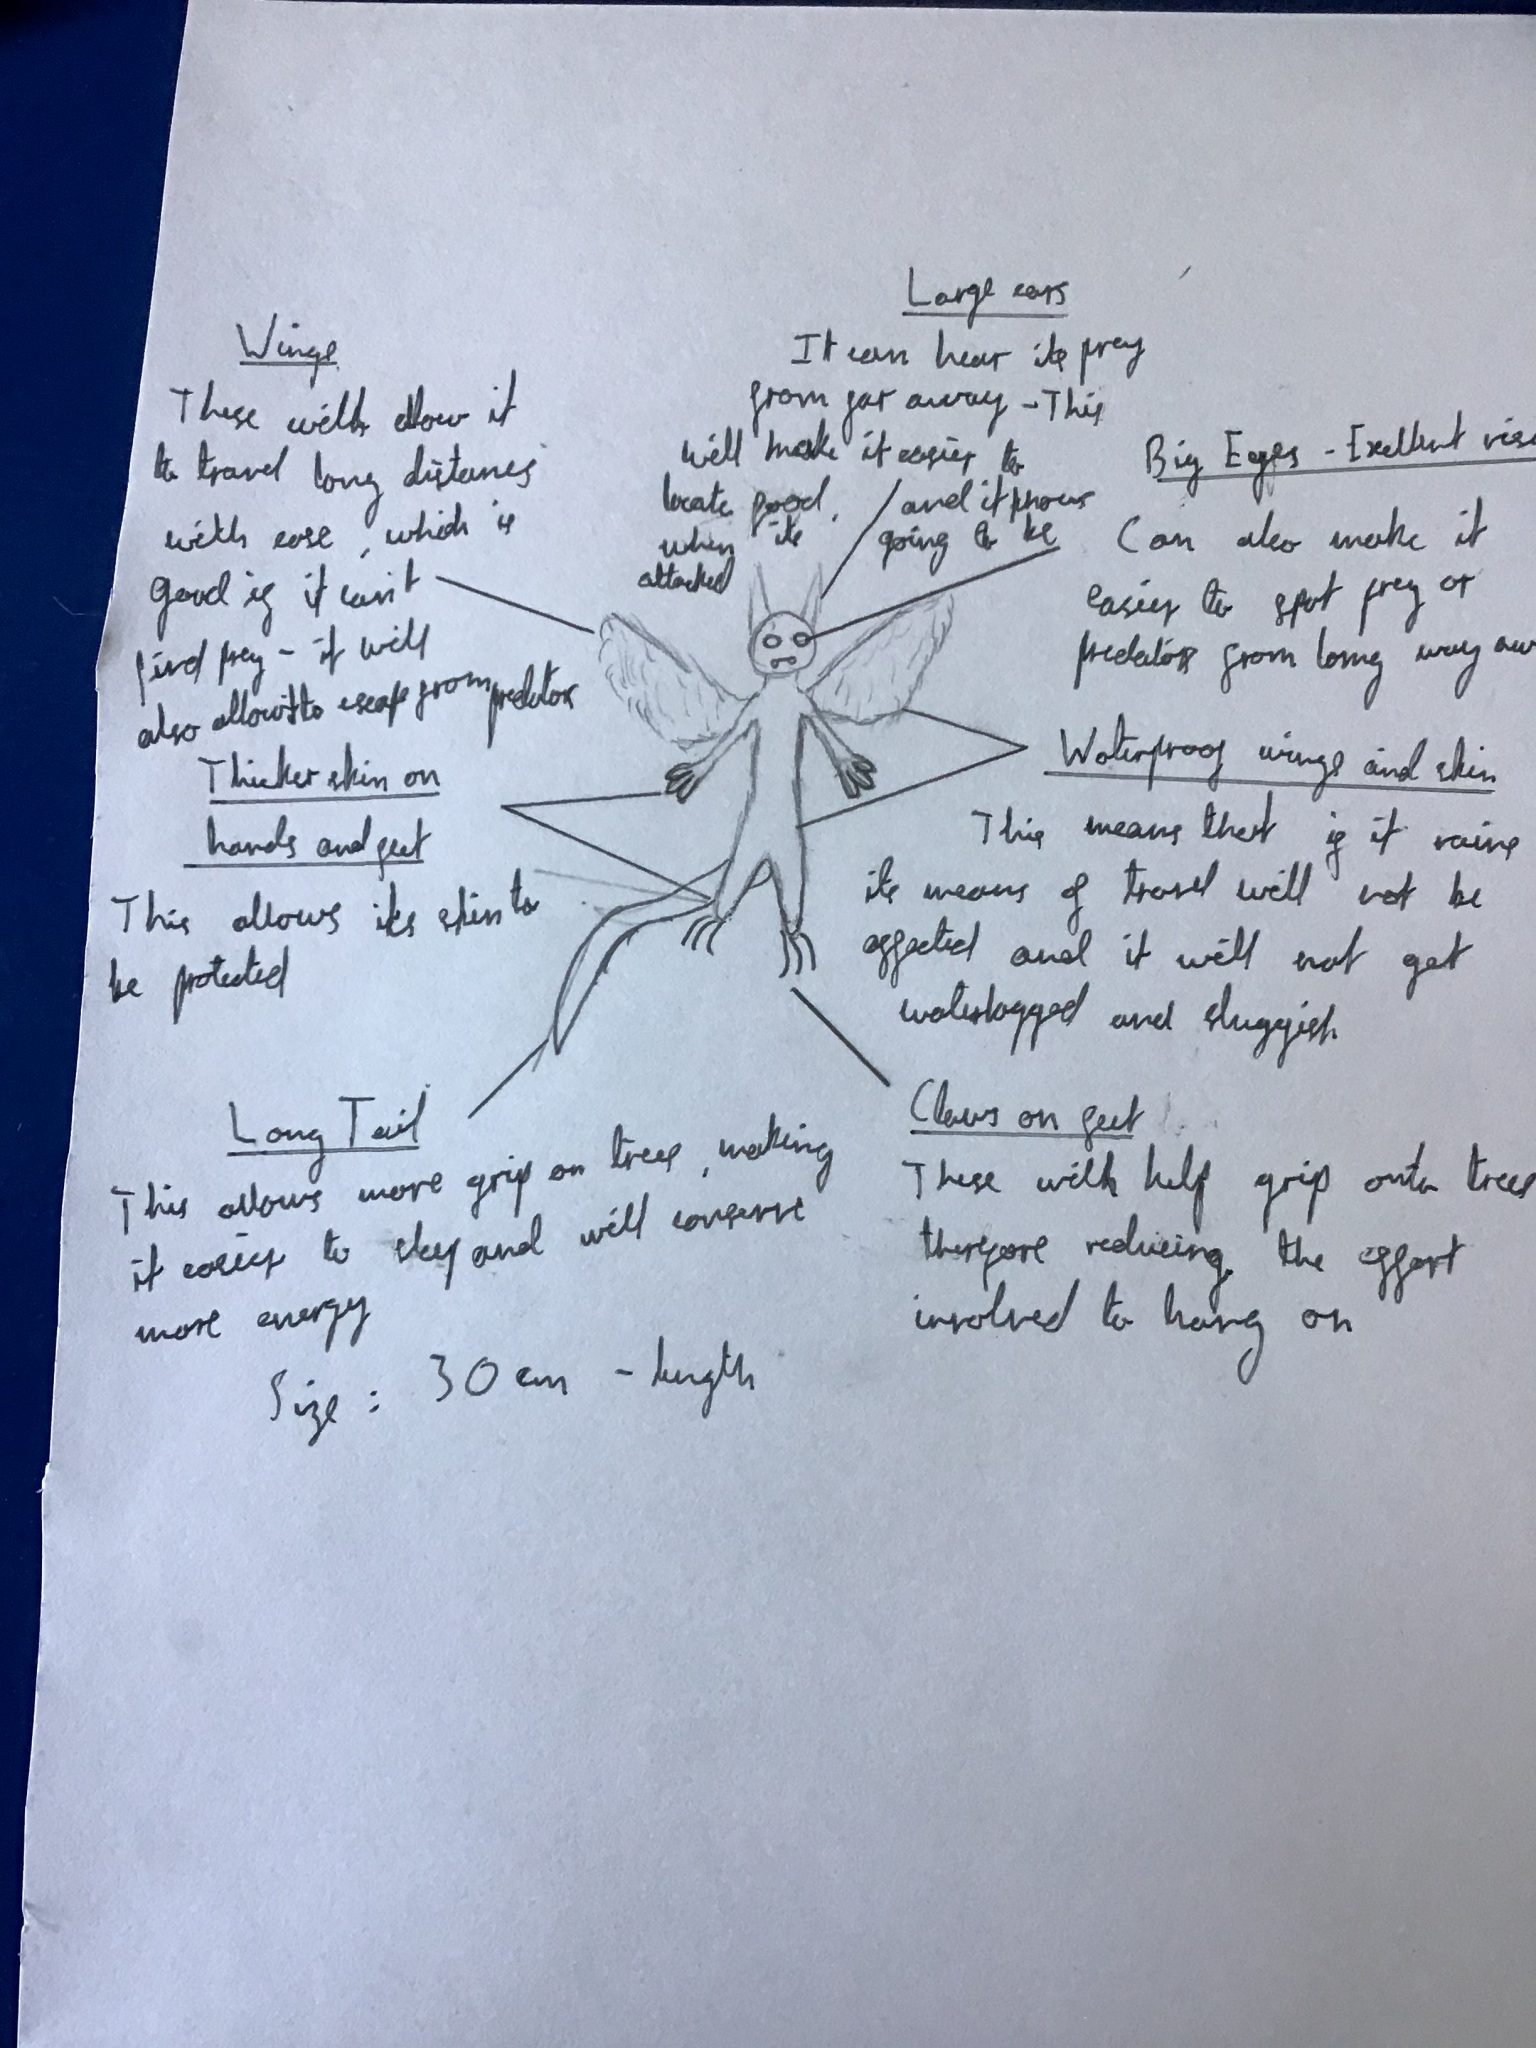 Large ears
It can hear its prey
from far away - This
will make it easier to
locate food, and it knows
when its going to be
attacked
Wings
These will allow it
to travel long distances
with ease, which is
good if it can't
find prey - it will
also allow it to escape from predators
Big Eyes - Exellent
Can also make it
easier to spot prey or
predators from long way
Thicker skin on
hands and feet
This allows its skin to
be protected
Waterproof wings and skin
This means that if it rains
its means of travel will not be
affected and it will not get
waterlogged and sluggish
Long Tail
This allows more grip on trees, making
it easier to sleep and will conserve
more energy
Claws on feet
These will help grip onto trees
therefore reducing the effort
involved to hang on
Size : 30 cm - length